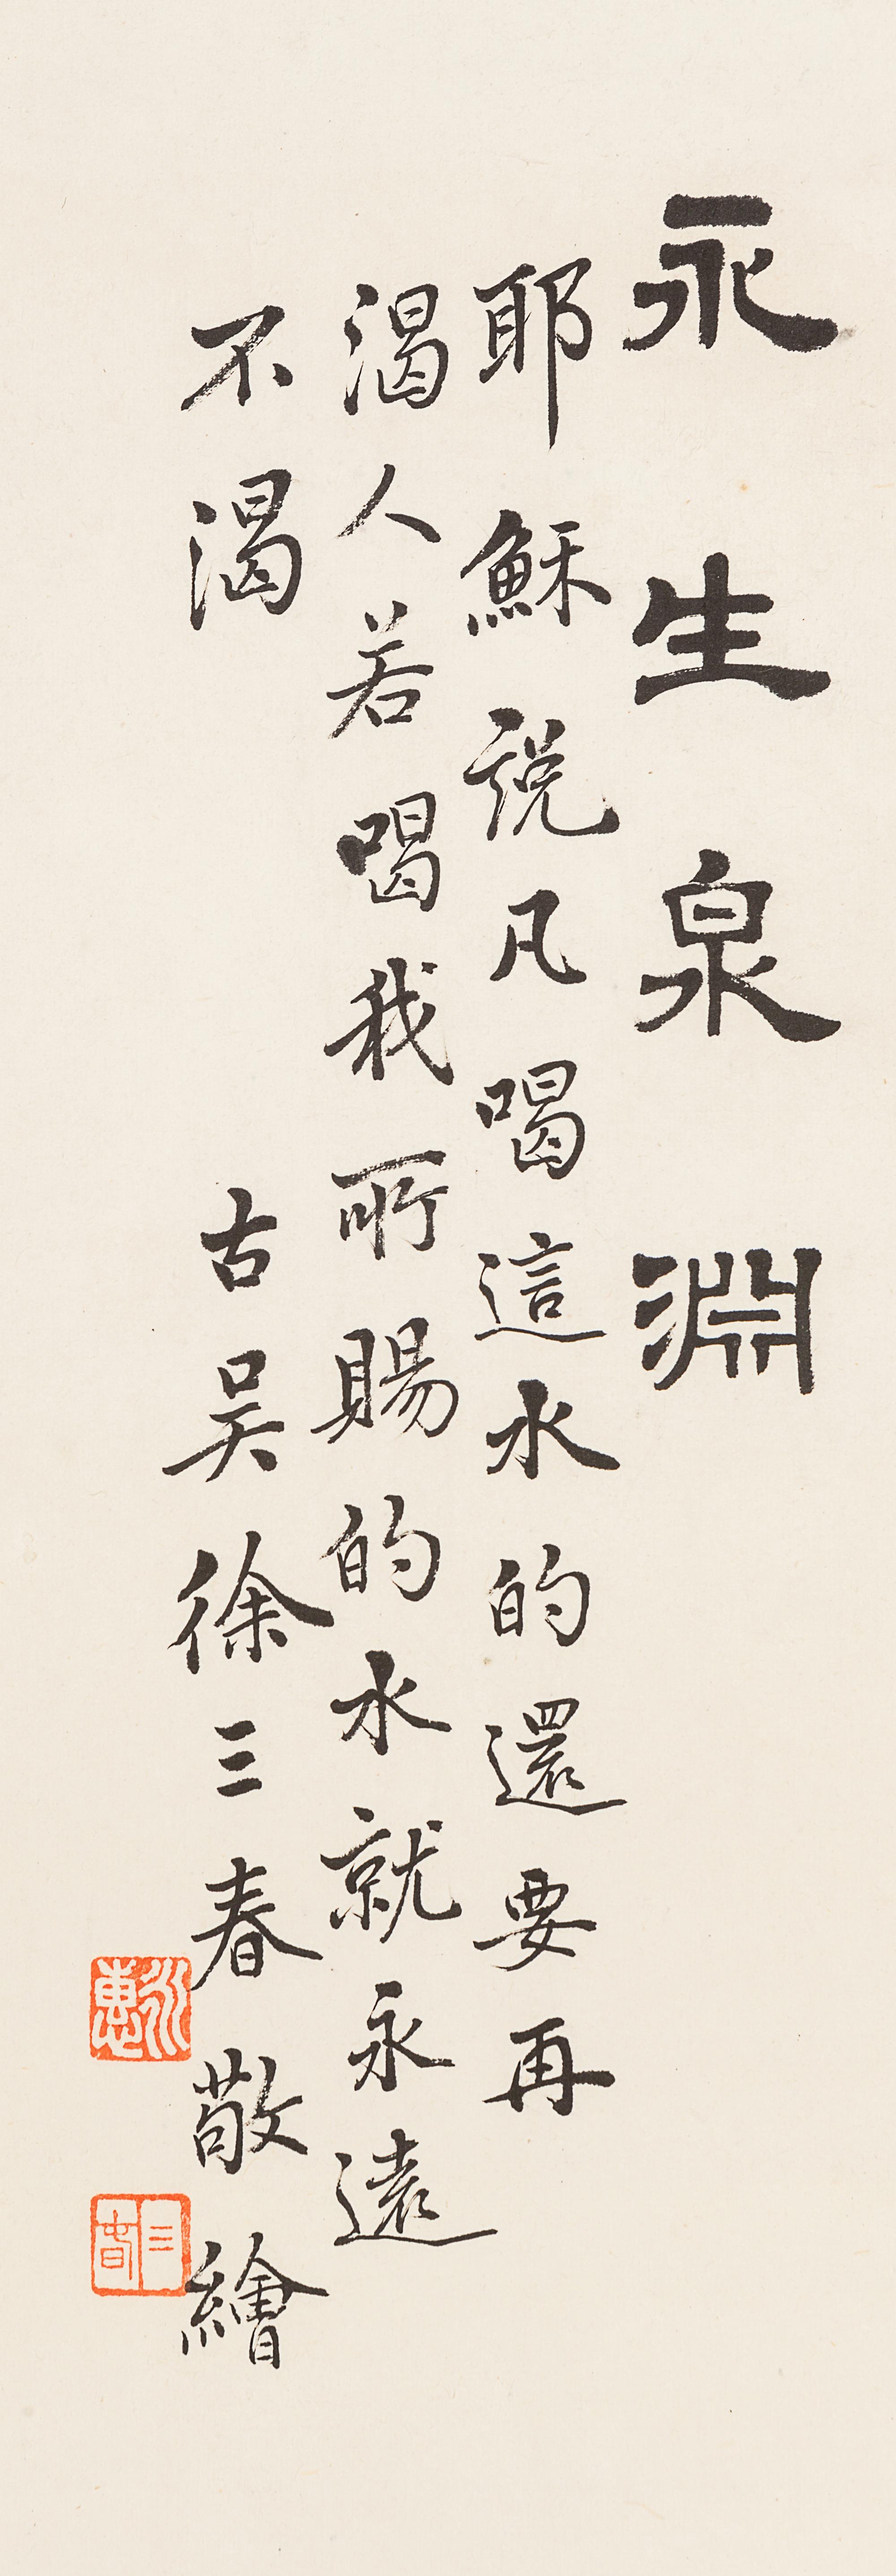 永生泉淵
耶穌說凡喝這水的還要再
渴人若喝我所賜的水就永遠
不渴
古吳徐三春敬繪
三春